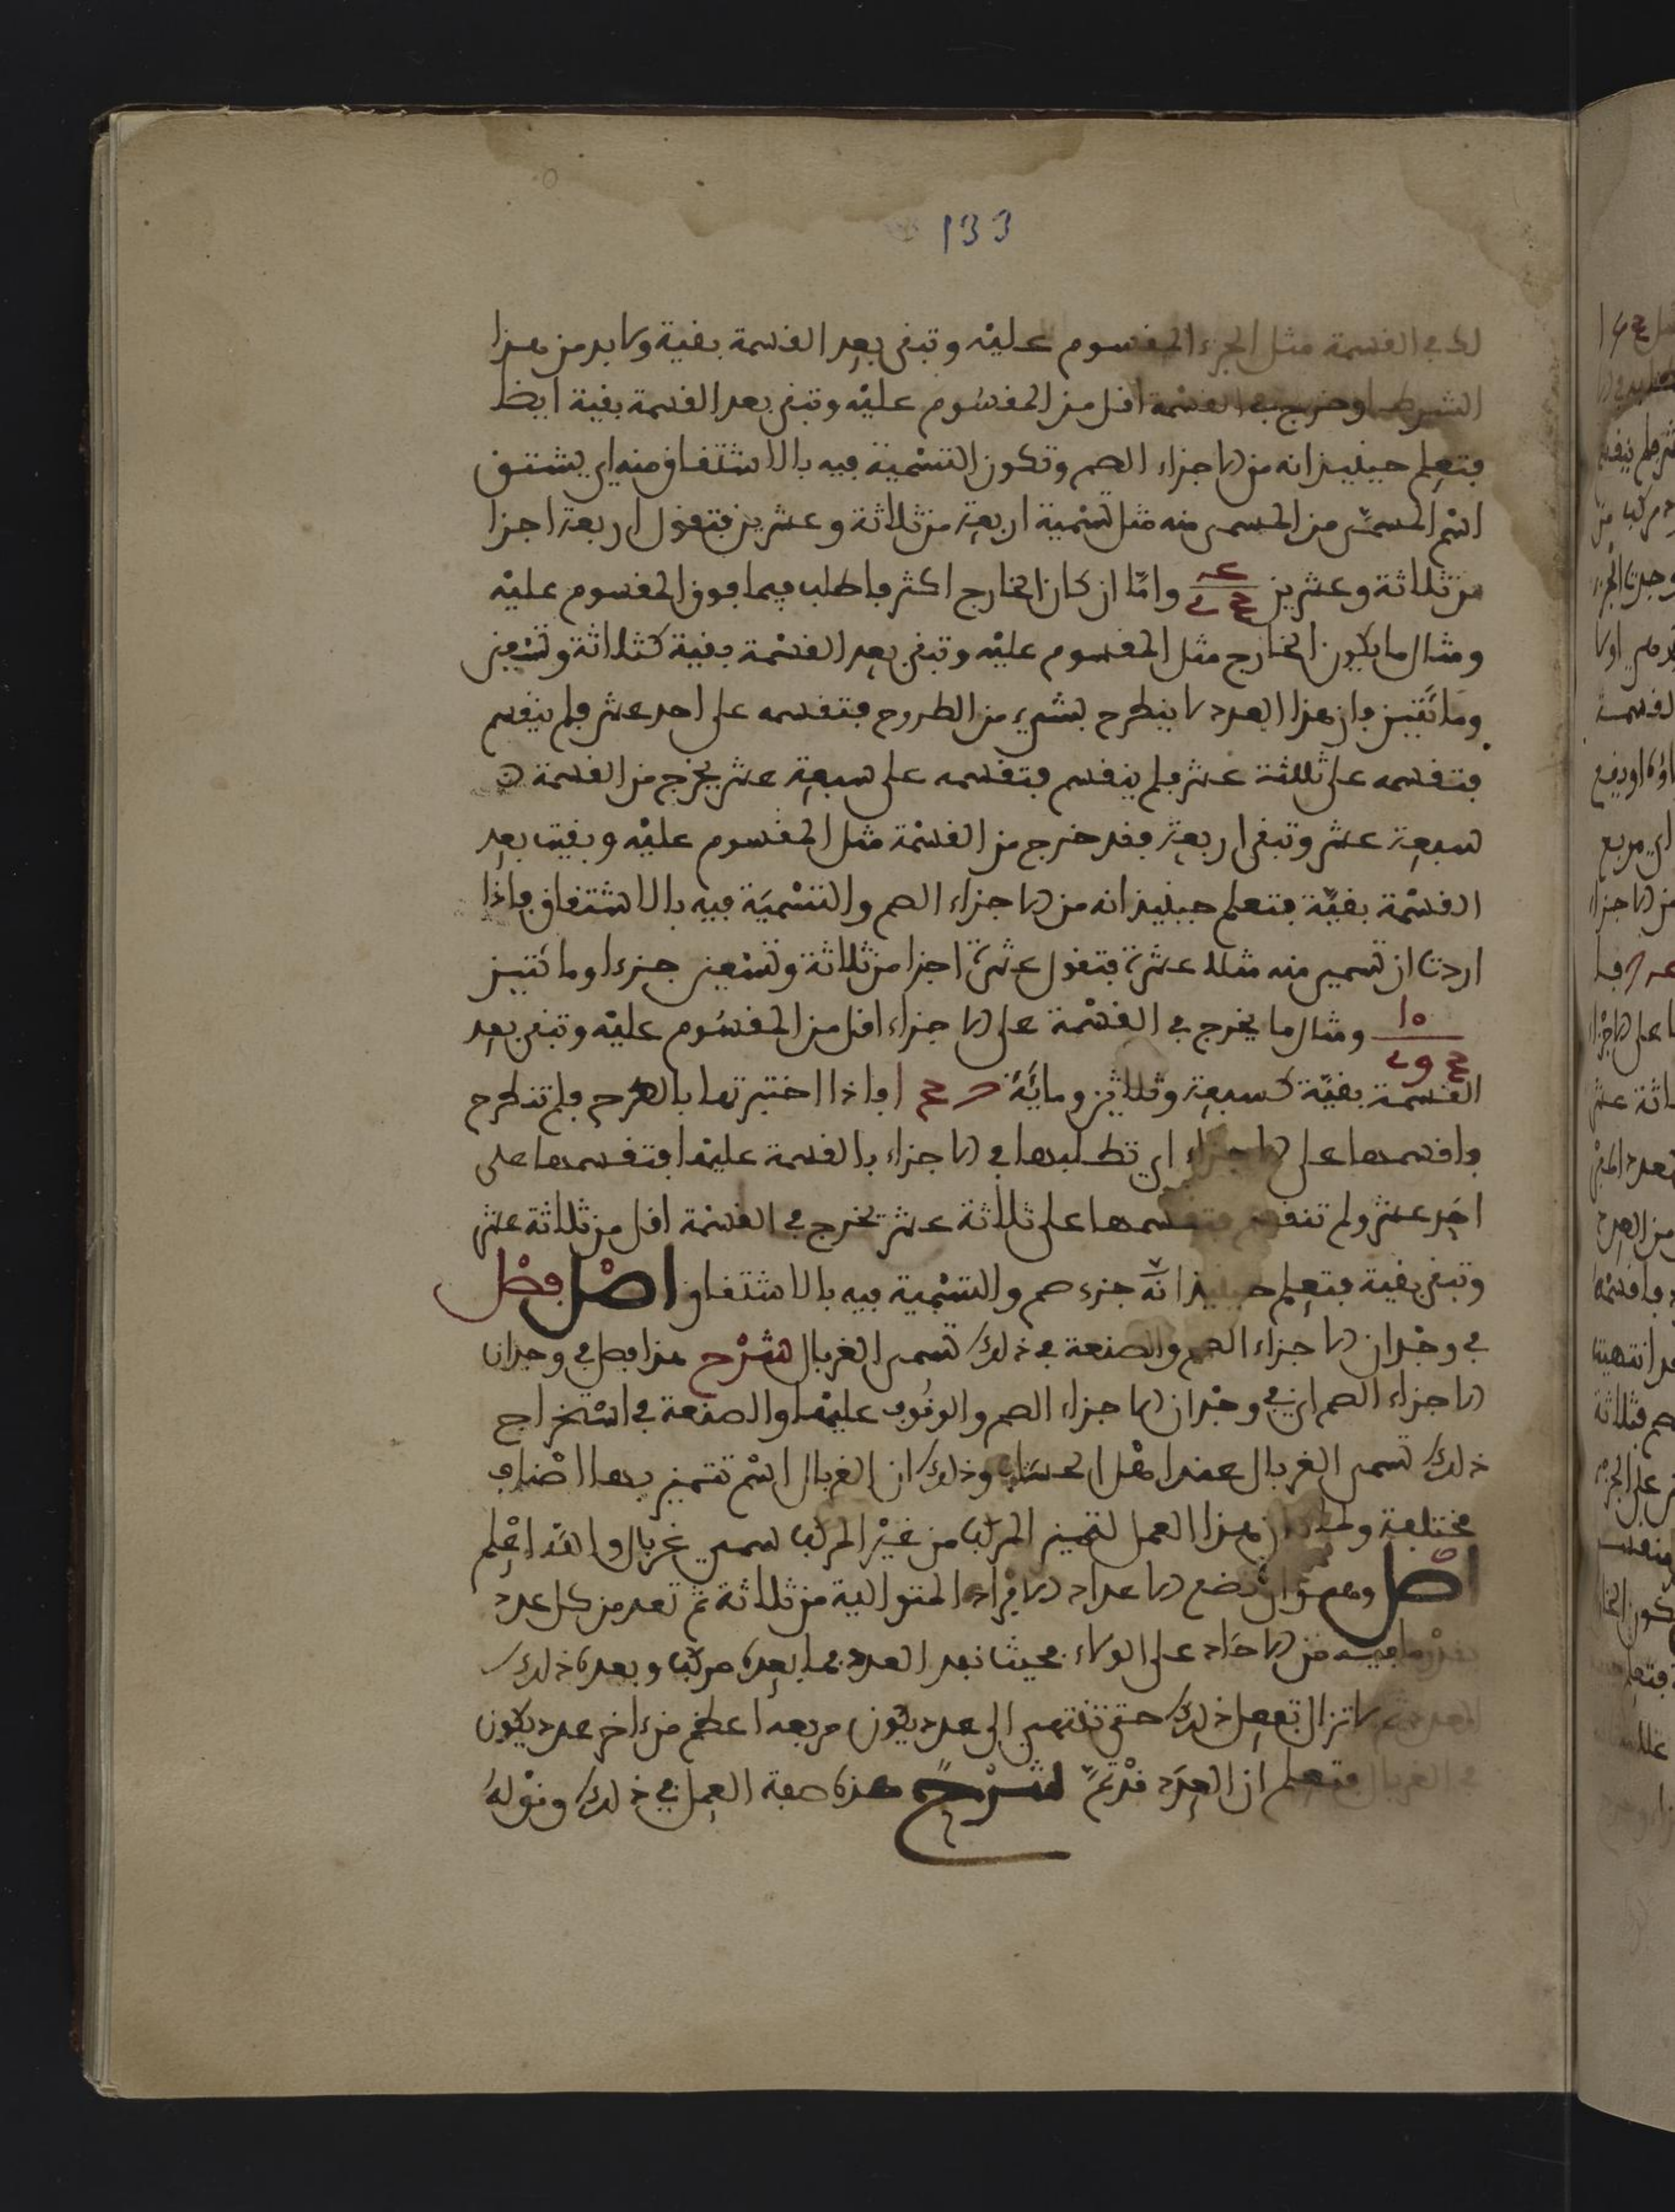 133
لك في القسمة مثل الجزء المقسوم عليه وتبقى بعد القسمة بقية ولا بد من هذا
الشرط او خرج في القسمة اقل من المقسوم عليه وتبقى بعد القسمة بقية ايضا
فتعلم حينيذ انه من الاجزاء الصم وتكون التسمية فيه بالاشتقاق منه اي يشتق
اسم المسمى من المسمى منه مثل تسمية اربعة من ثلاثة وعشرين فتقول اربعة اجزا
من ثلاثة وعشرين وامّا ان كان الخارج اكثر فاطلب فيما فوق المقسوم عليه
ومثال ما يكون الخارج مثل المقسوم عليه وتبقى بعد القسمة بقية كثلاثة وتسعين
ومائتين فان هذا العدد لا ينطرح بشيء من الطروح فتقسمه على احد عشر فلم ينقسم
فتقسمه على ثلثة عشر فلم ينقسم فتقسمه على سبعة عشر يخرج من القسمة
سبعة عشر وتبقى اربعة فقد خرج من القسمة مثل المقسوم عليه وبقيت بعد
القسمة بقيّة فتعلم حينيذ انه من الاجزاء الصم والتسمية فيه بالاشتقاق فاذا
اردت ان تسمي منه مثلا عشرة فتقول عشرة اجزا من ثلاثة وتسعين جزءا ومائتين
ومثال ما يخرج في القسمة على الاجزاء اقل من المقسوم عليه وتبقى بعد
القسمة بقيّة كسبعة وثلاثين ومائة فاذا اختبرتها بالطرح فلم تنطرح
فاقسمها على الاجزاء اي تطلبها في الاجزاء بالقسمة عليها فتقسمها على
احد عشر ولم تنقسم فتقسمها على ثلاثة عشر تخرج في القسمة اقل من ثلاثة عشر
وتبقى بقية فتعلم حينيذ انّه جزء صم والتسمية فيه بالاشتقاق اصل فصل
في وجدان الاجزاء الصم والصنعة في ذلك تسمى الغربال شرح هذا فصل في وجدان
الاجزاء الصم اي في وجدان الاجزاء الصم والوقوف عليها والصنعة في استخراج
ذلك تسمى الغربال عند اهل الحساب وذلك ان الغربال اسم تتميز بها اصناف
مختلفة ولما كان هذا العمل لتمييز المركب من غير المركب سمي غربال والله اعلم
اصل وهو ان تضع الاعداد الافراد المتوالية من ثلاثة ثم تعد من كل عدد
بقدر ما فيه من الاحاد على الولاء بحيث نفد العدد فما بعده مركب وبعده ذلك
العدد ثم لا تزال تفعل ذلك حتى تنتهي الى عدد يكون مربعه اعظم من اخر عدد يكون
في الغربال فتعلم ان العدد قد تمّ شرح هذه صفة العمل في ذلك وقوله